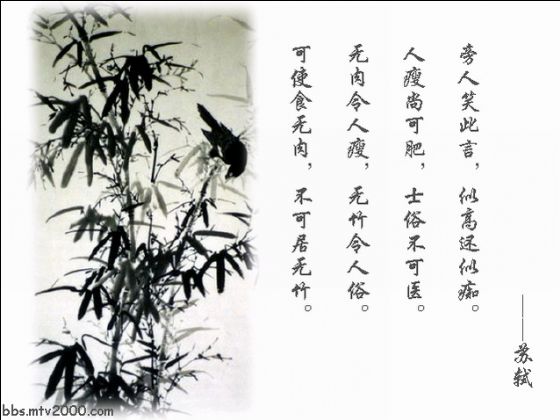 可使食无肉，不可居无竹。
无肉令人瘦，无竹令人俗。
人瘦尚可肥，士俗不可医。
旁人笑此言，似高还似痴。
——苏轼
bbs.mtv2000.com